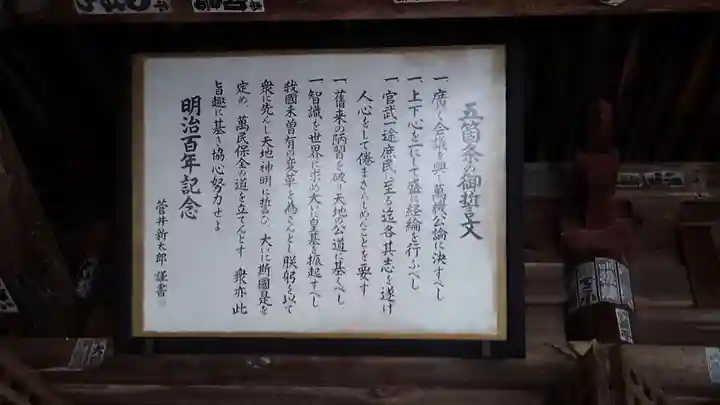 五箇条の御誓文
一、廣く会議を興し萬機公論に決すべし
一、上下心を一にして盛に経綸を行ふべし
一、官武一途庶民に至る迄各其志を遂げ
人心をして倦まざらしめんことを要す
一、舊来の陋習を破り天地の公道に基くべし
一、智識を世界に求め大に皇基を振起すべし
我國未曽有の変革を為さんとし朕躬を以て
衆に先んじ天地神明に誓ひ大に斯國是を
定め、萬民保全の道を立てんとす 衆亦此
旨趣に基き協心努力せよ
明治百年記念
菅井新太郎 謹書